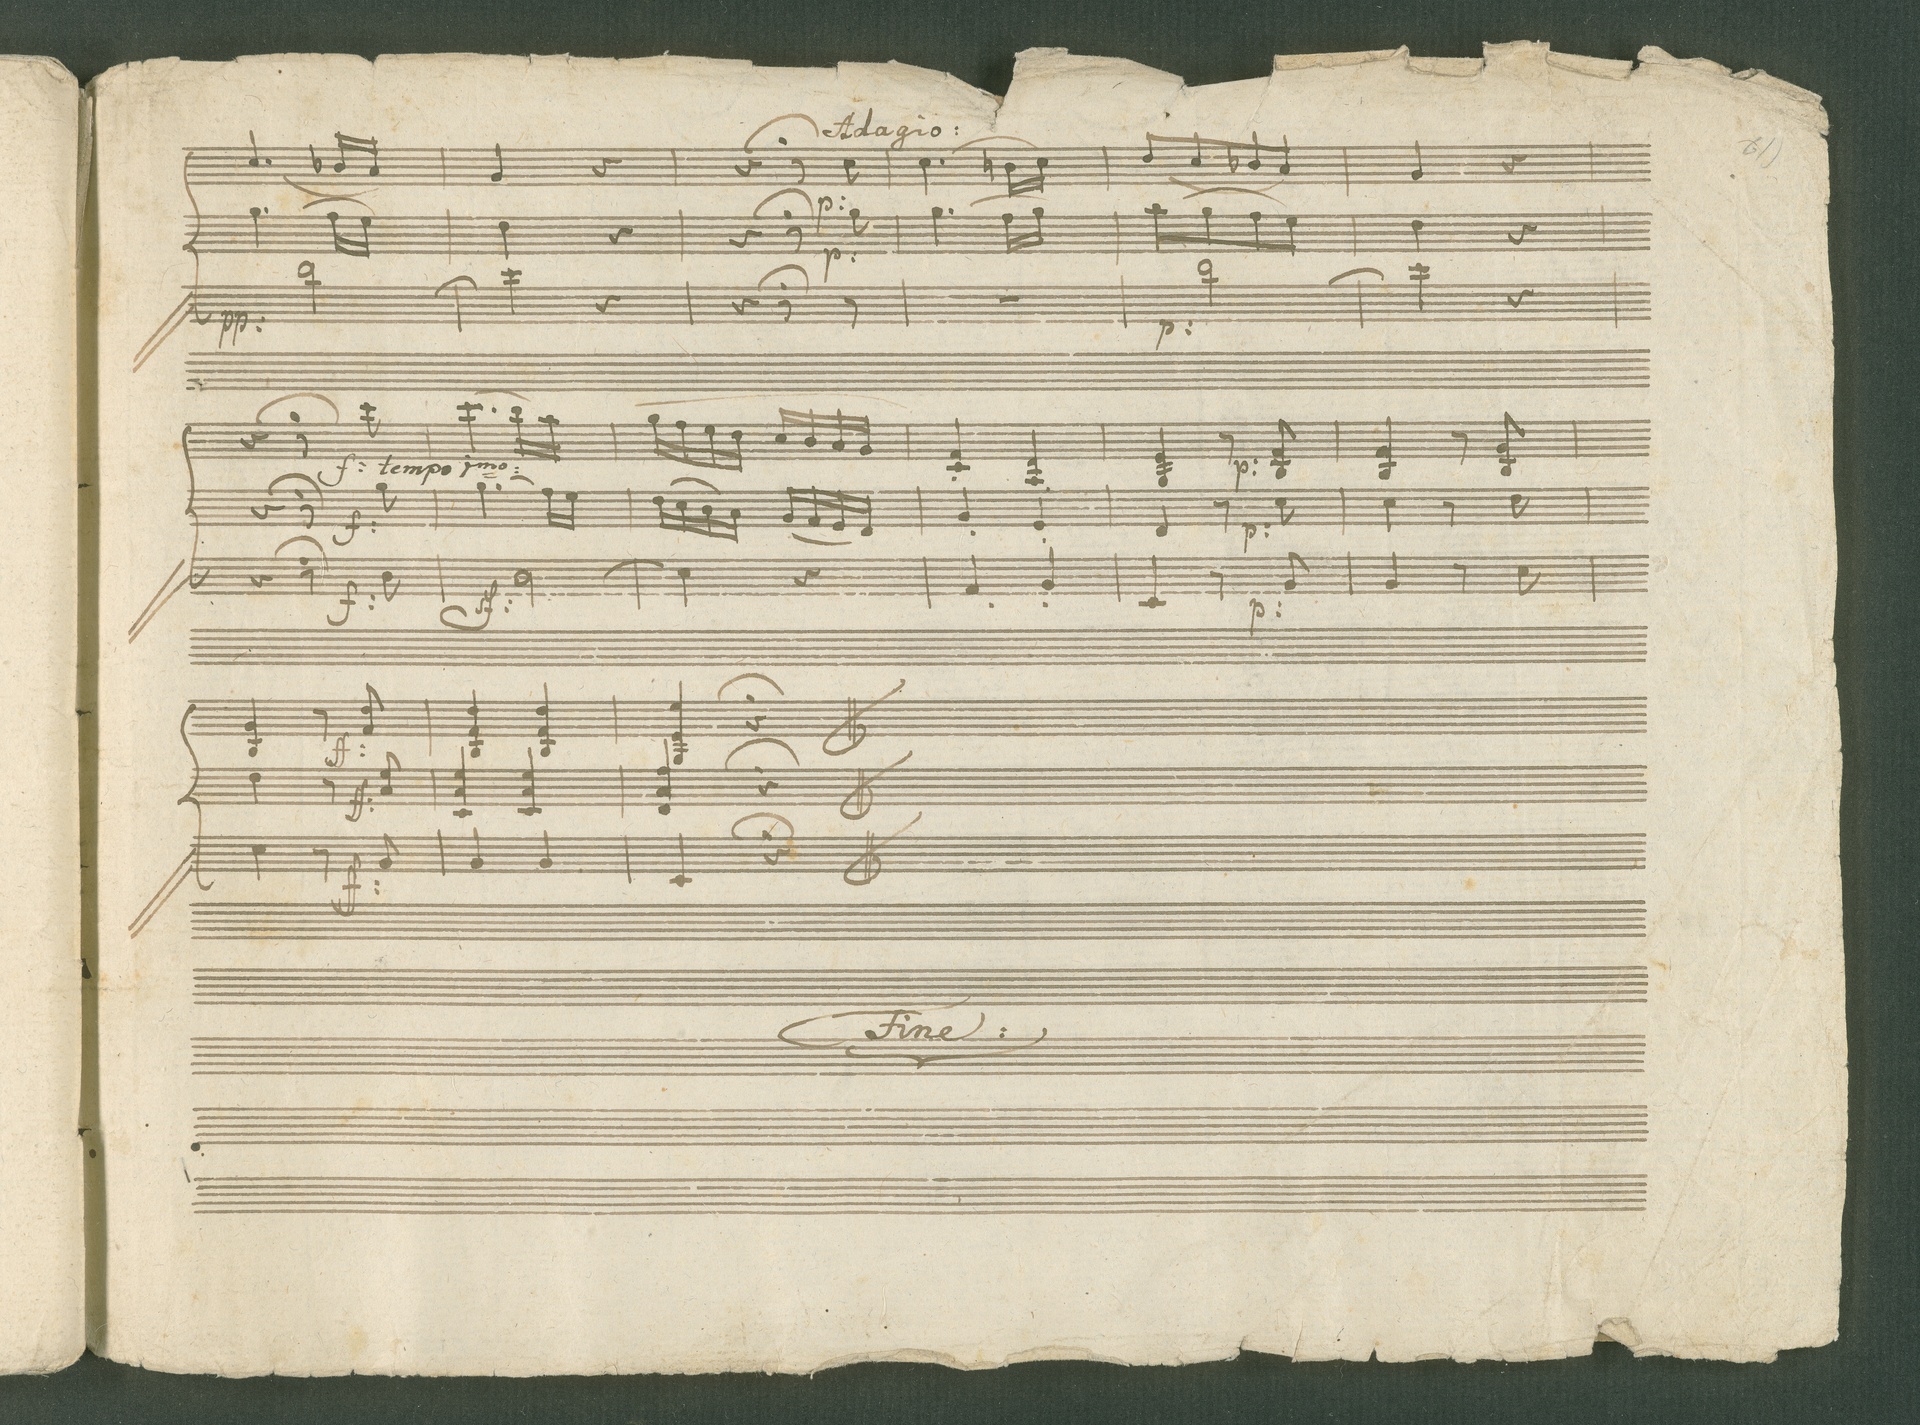 Adagio:
p:
p:
pp:
p:
f: tempo imo:
p:
f:
p:
f:
sf:
p:
ff:
ff:
ff:
Fine: